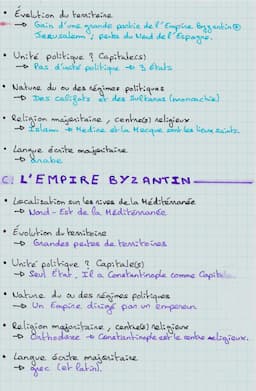 • Évolution du territoire
→ Gain d'une grande partie de l'Empire Byzantin ⊕
Jérusalem ; perte du Nord de l'Espagne.
• Unité politique ? Capitale(s)
→ Pas d'unité politique → 3 États
• Nature du ou des régimes politiques
→ Des califats et des sultanas (monarchie)
• Religion majoritaire, centre(s) religieux
→ Islam → Médine et la Mecque sont les lieux saints
• Langue écrite majoritaire
→ arabe
C. L'EMPIRE BYZANTIN
• Localisation sur les rives de la Méditérranée
→ Nord-Est de la Méditérranée
• Évolution du territoire
→ Grandes pertes de territoires
• Unité politique ? Capitale(s)
→ Seul État, Il a Constantinople comme Capitale
• Nature du ou des régimes politiques
→ Un Empire dirigé par un empereur
• Religion majoritaire, centre(s) religieux
→ Orthodoxe → Constantinople est le centre religieux.
• Langue écrite majoritaire
→ grec (et latin).